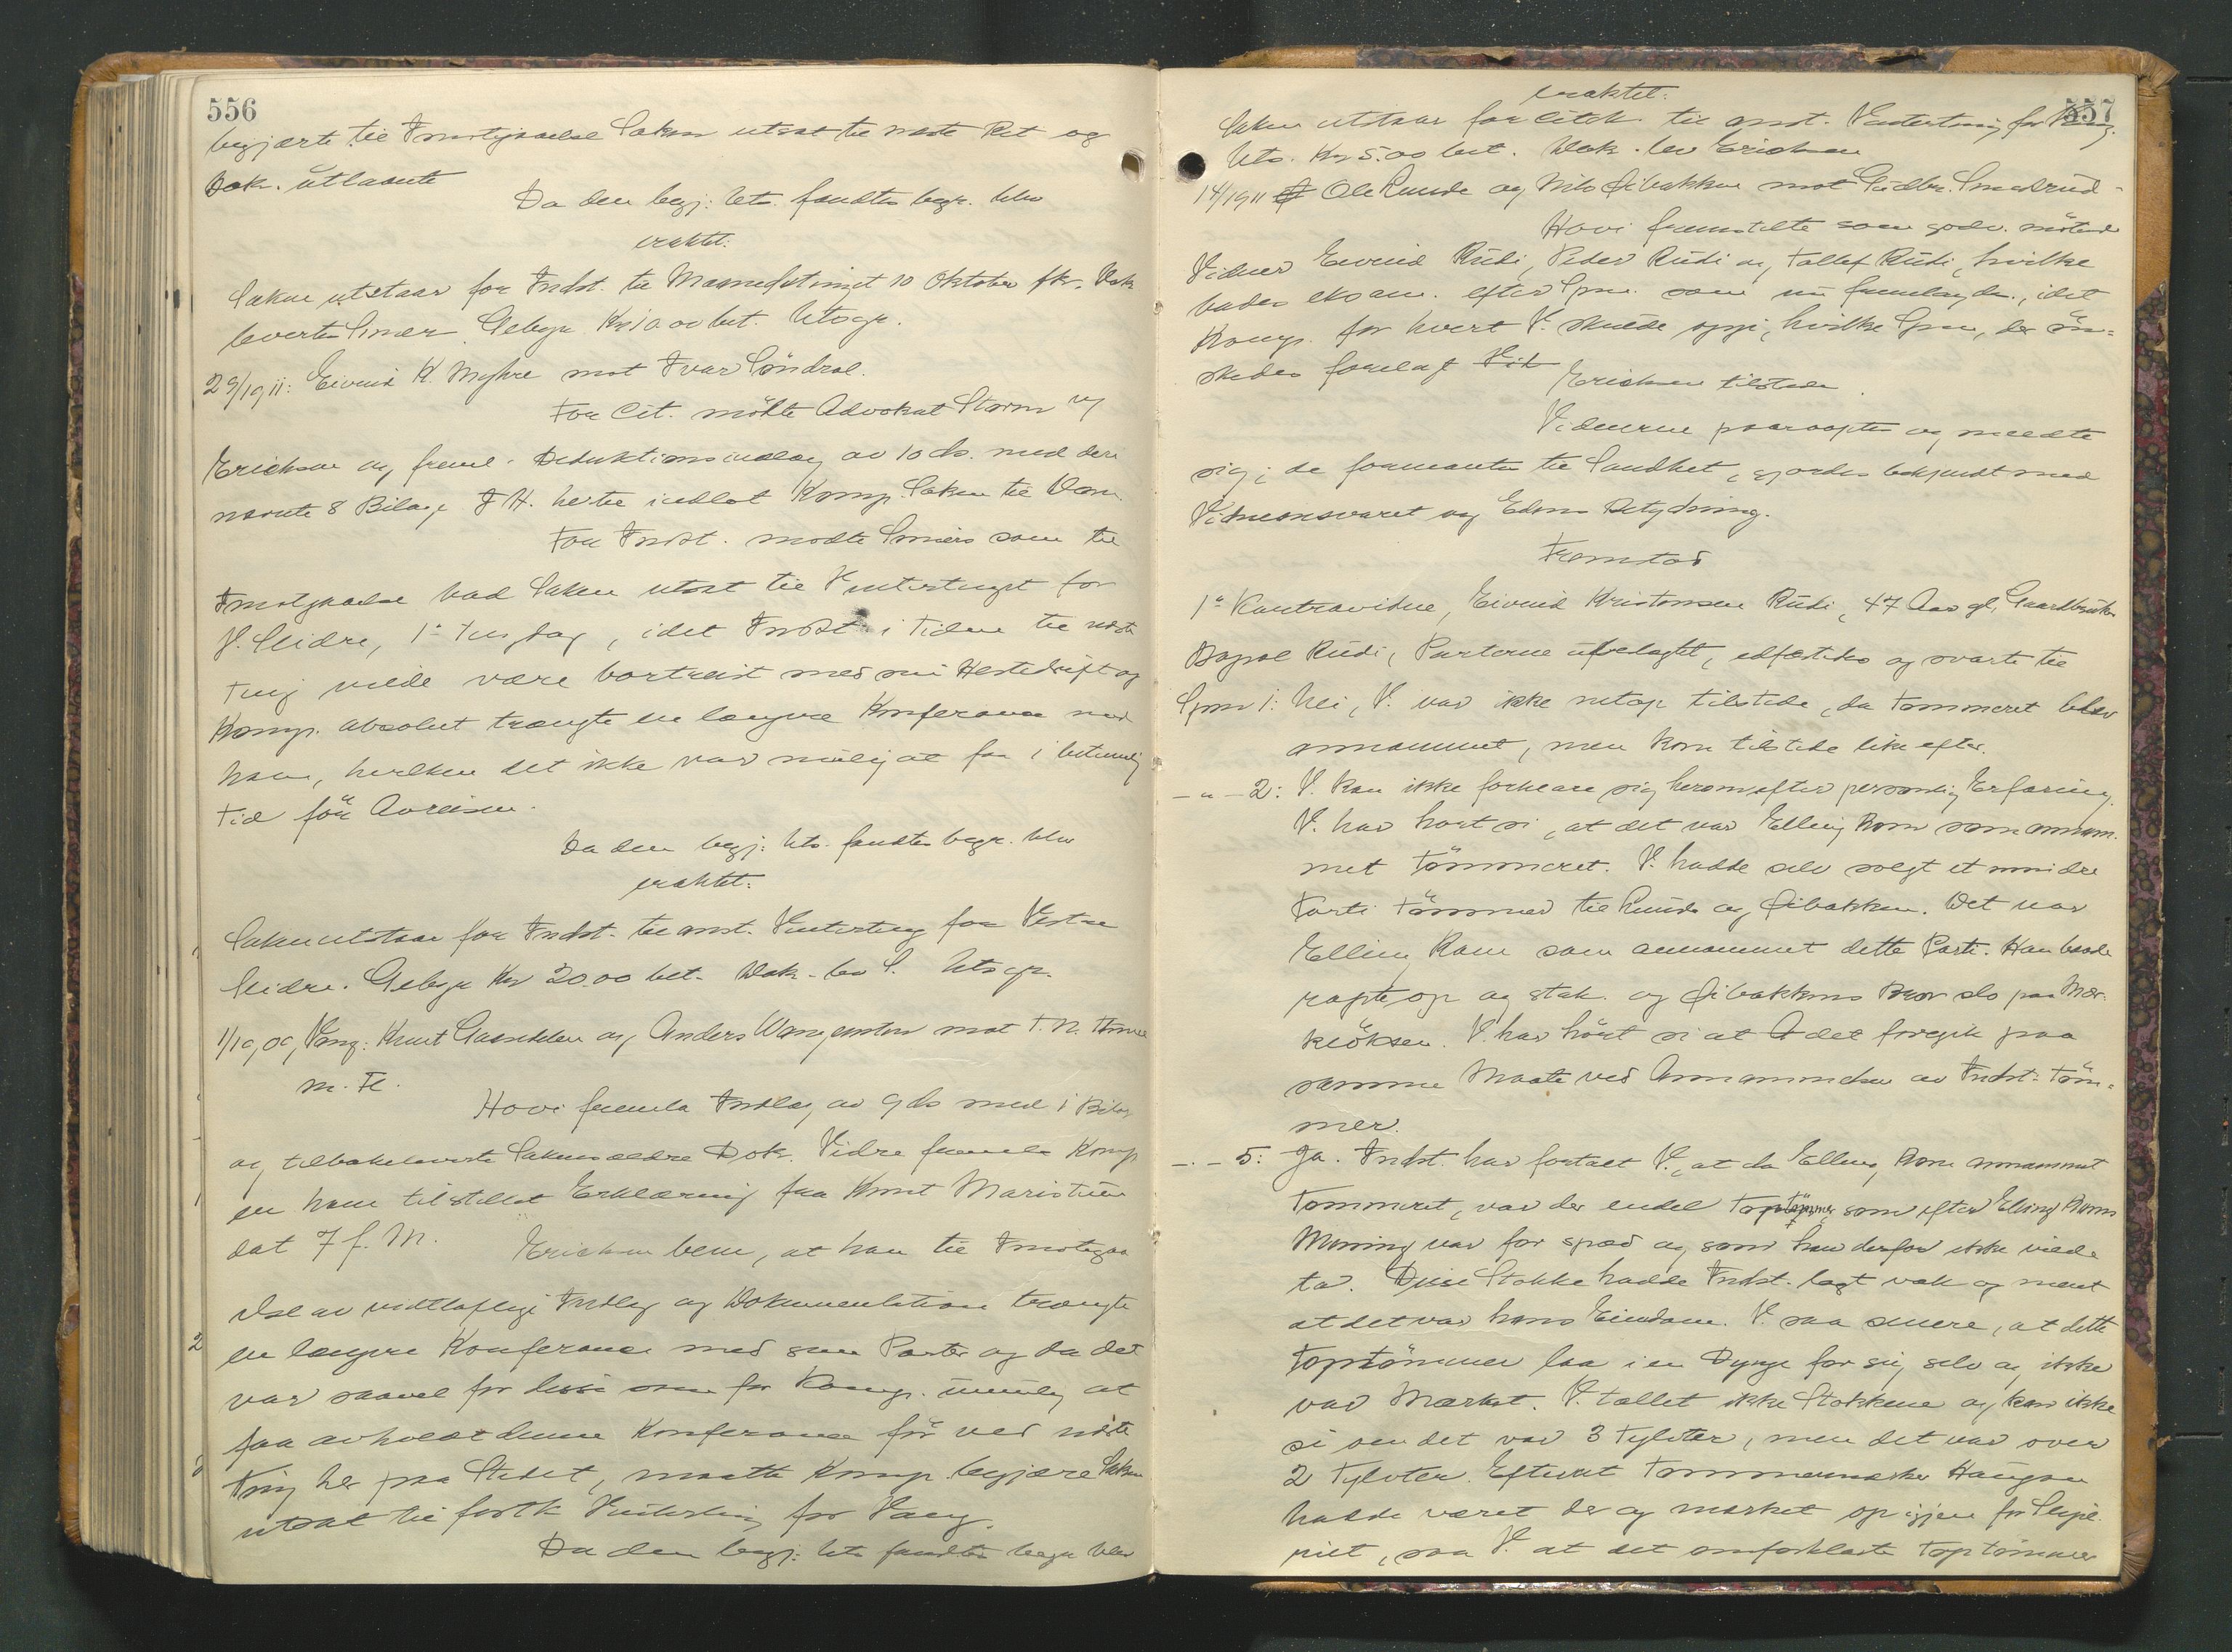 556
begjærte til Imøtegaaelse Saken utsat til næste Ret og
Dok. utlaante
Da den begj: Uts. fandtes begr. blev
eraktet:
Saken utstaar for Indst. til Maanedstinget 10 Oktober fk. Dok
levertes Smær. Gebyr Kr 10.00 bet. Utsgr.
29/1911: Eivind K. Myhre mot Ivar Söndrol.
For Cit. mötte Advokat Storm ved
Erichsen og freml. Deduktionsindlæg av 10 ds. med deri
nævnte 8 Bilage I H. hertil indlot Komp. Saken til Dom
For Indst. mödte Smiers som til
Imøtgaaelse bad Saken utsat til Vintertinget for
V. Slidre, 1ste Tingdag, idet Indst. i Tiden til næste
Ting vilde være bortreist med sin Hestedrift og
Komp. absolut trængte en længere Konferanse med
ham, hvilken det ikke var mulig at faa i betimelig
Tid för Avreisen.
Da den begj: Uts. fandtes begr. blev
eraktet:
Saken utstaar for Indst. til anst. Vinterting for Vestre
Slidre. Gebyr Kr 20.00 bet. Dok. lev S. Utsgr.
1/10,09, Vang: Knut og Anders Wangensten mot T. N.
m. Fl.
Hovi fremla Indlæg av 9 ds med 1 Bilag
og tilbakeleverte Sakens ældre Dok. Vidre fremla Komp
en ham tilstillet Erklæring fra Knut Maristuen
dat 7 f. M.
Erichsen bem, at han til Imøtegaa
else av vidtløftige Indlæg og Dokumentation trængte
en længere Konferanse med sine Parter og da det
var saavel for disse som for Komp. umulig at
faa avholdt denne Konferanse för ved næste
Ting her paa Stedet, maatte Komp. begjære Saken
utsat til førstk Vinterting for Vang.
Da den begj: Uts fandtes begr blev
557
eraktet:
Saken utstaar for Citck. til anst. Vinterting for Vang.
Uts. Kr 5.00 bet. Dok. lev Erichsen
14/1911 Ole Lunde og Nils Öibakken mot Gudbr. Smedsrud
Hovi fremstilte som godv. mötende
Vidner Eivind Rudi, Peder Rudi og Tollef Rudi, hvilke
bades eksam. efter Spm. som nu fremlagdes, idet
Komp. for hvert V. skulde opgi, hvilke Spm, der ön=
skedes forelagt Vid
Erichsen tilstede.
Vidnerne paaraaptes og meldte
sig; de formantes til Sandhet, gjordes bekjendt med
Vidneansvaret og Edens Betydning.
Fremstod
1ste Kontravidne, Eivind Kristensen Rudi, 47 Aar gl, Gaardbruker
Bopæl Rudi, Parterne ubeslægtet, edfæstedes og svarte til
Spm 1: Nei, V. var ikke netop tilstede, da Tømmeret blev
annammet, men kom tilstede like efter.
– " – 2: V. kan ikke forklare sig herom efter personlig Erfaring.
V. har hørt si, at det var Elling Kom som annam-
met Tömmeret. V. hadde selv solgt et mindre
Parti Tömmer til Lunde og Öibakken. Det var
Elling Kom som annammet dette Parti. Han baade
ropte op og stak. og Öibakkens Bror slo paa Mær-
keöksen. V. har hört si at det foregik paa
samme Maate ved Annammelsen av Indst: Töm=
mer.
– " – 5: Ja. Indst. har fortalt V., at da Elling Kom annammet
Tømmeret, var der endel Toptømmer som efter Elling Koms
Mening var for spæd og som han derfor ikke vilde
ta. Disse Stokke hadde Indst. lagt væk og ment
at det var hans Eiendom. V. saa senere, at dette
Toptömmer laa i en Dynge for sig selv og ikke
var Mærket. V. tællet ikke Stokkene og kan ikke
si om det var 3 Tylvter, men det var over
2 Tylvter. Efterat Tømmermærker Haugen
hadde været der og mærket op igjen for
piet, saa V. at det omforklarte Toptömmer